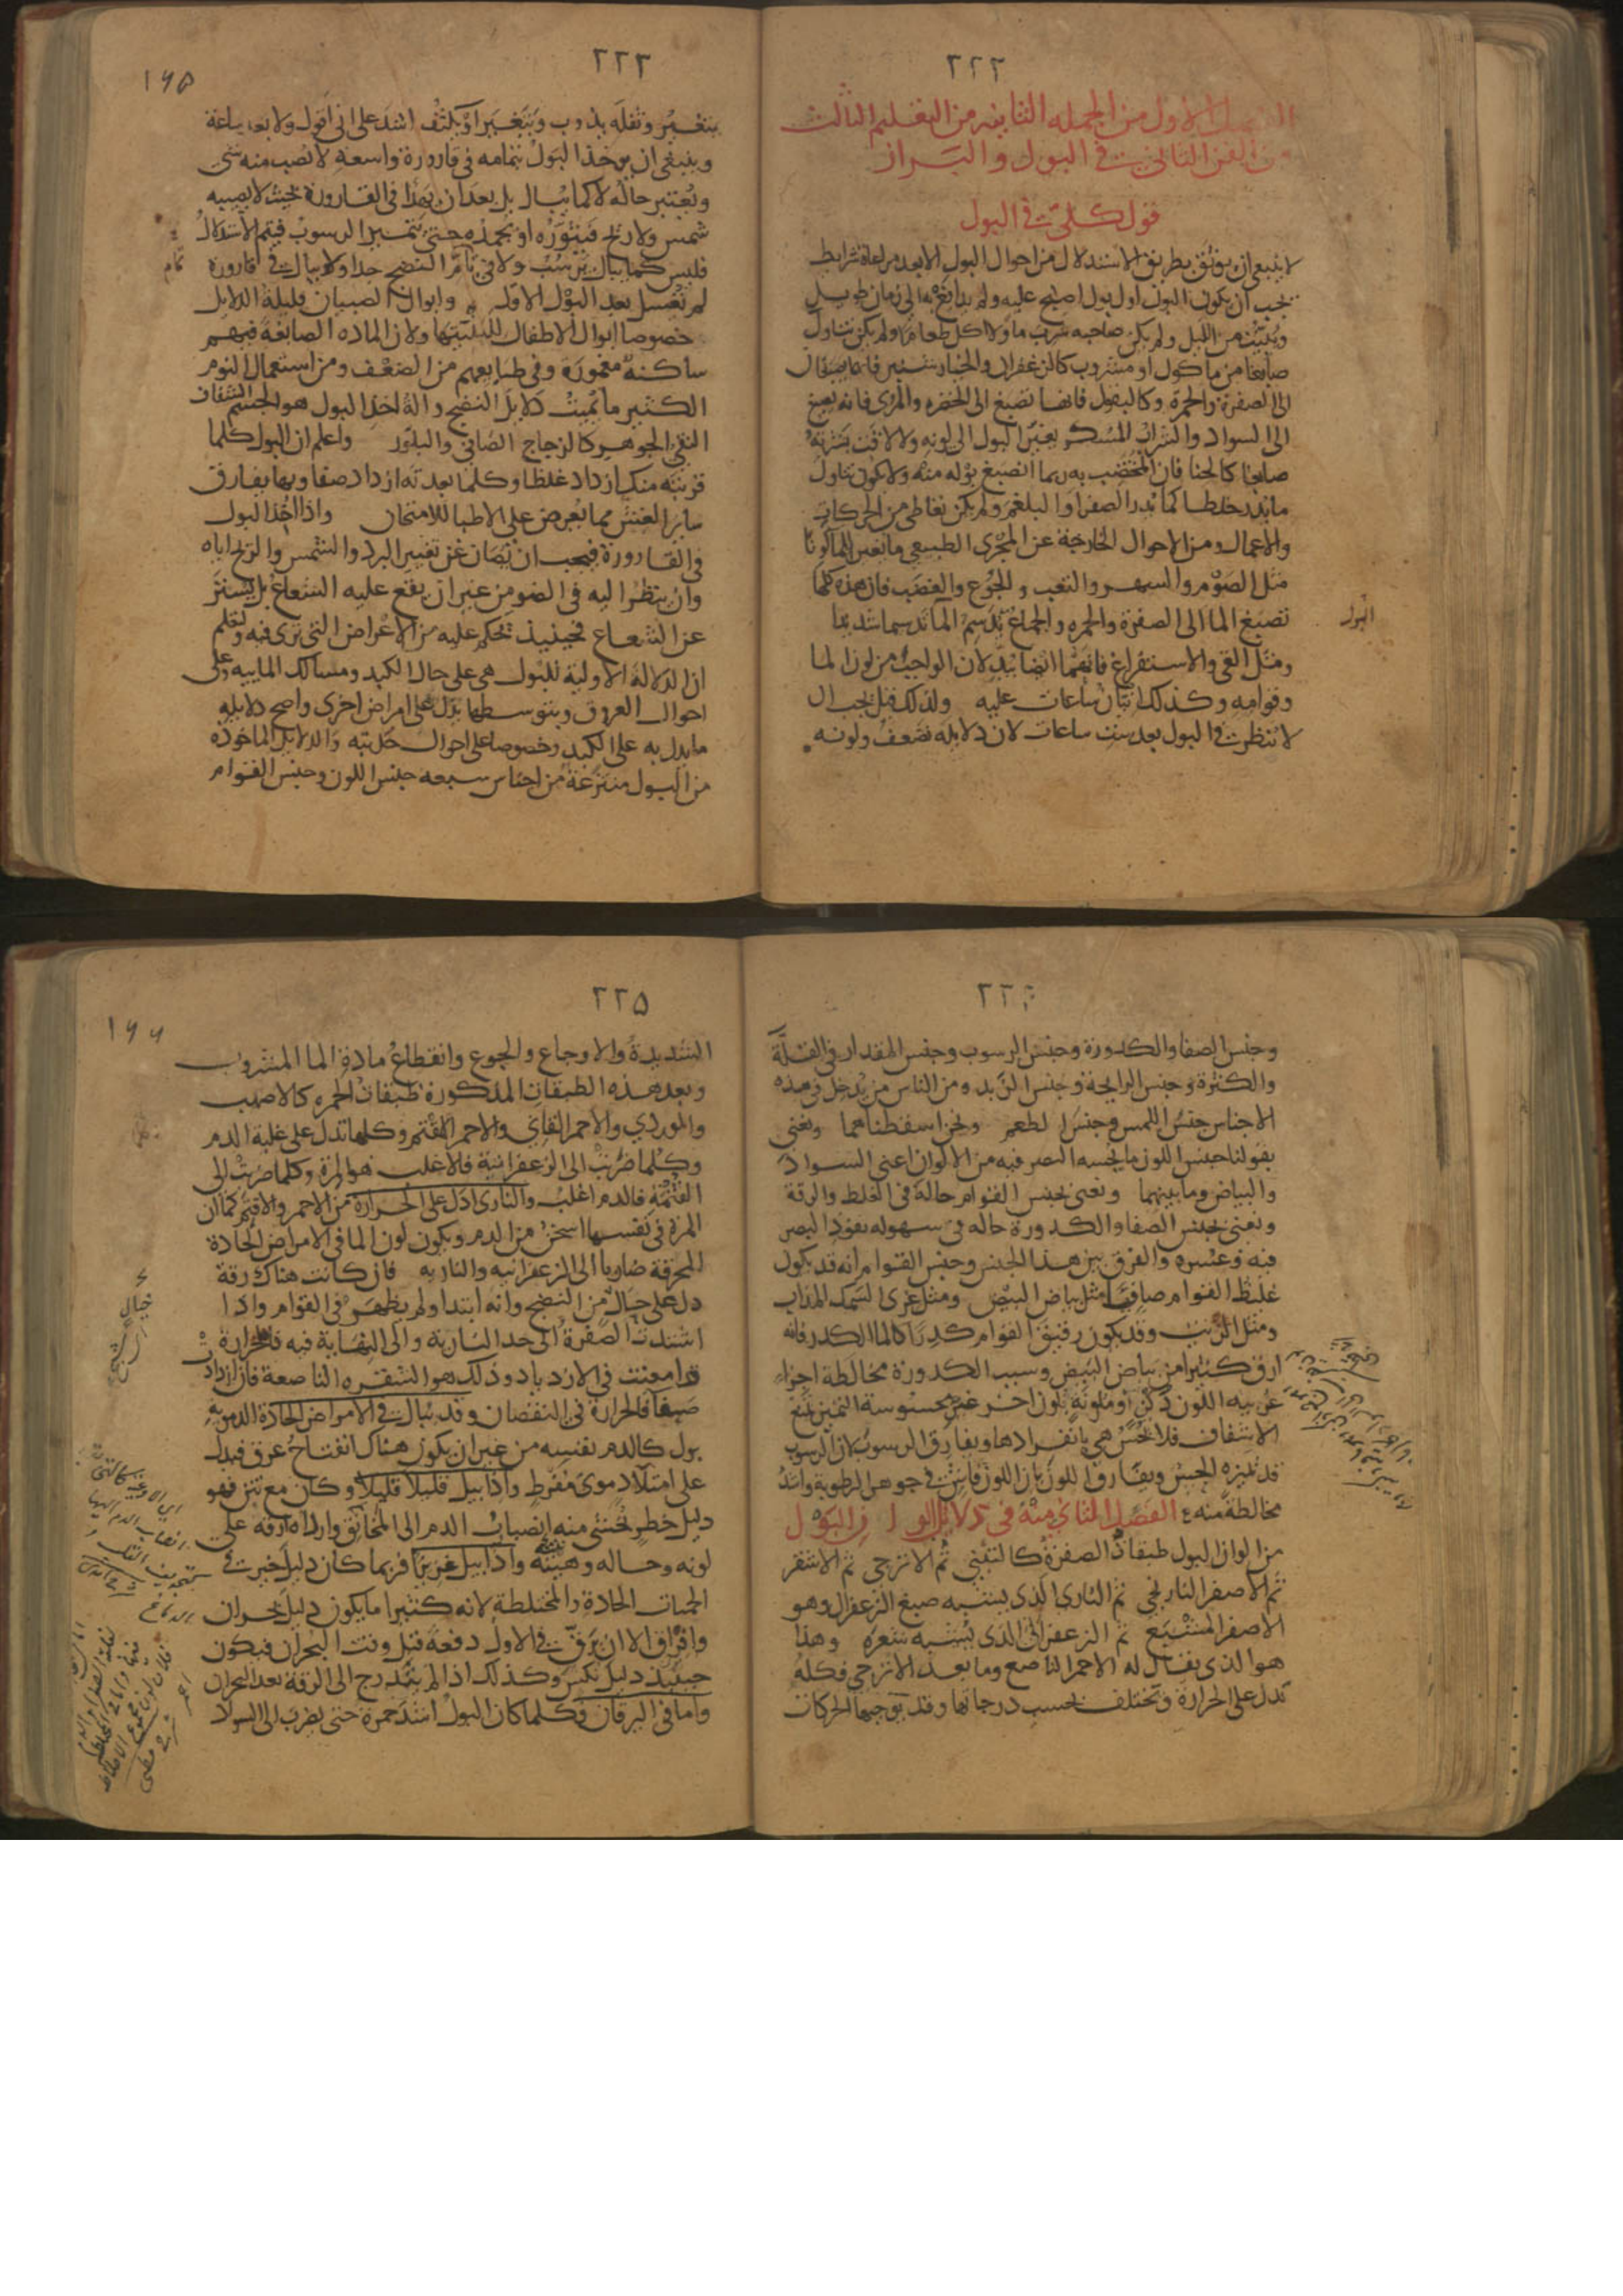 ٢٢٢
الفصل الاول من الجمله الثانيه من التعليم الثالث
من الفن الثاني في البول والبراز
قول كلي في البول
لا ينبغي ان يوثق بطريق الاستدلال من احوال البول الا بعد مراعاة شرايط
يجب ان يكون البول اول بول اصبح عليه ولم يدافع به الى زمان طويل
ويثبت من الليل ولم يكن صاحبه شرب ما ولا اكل طعاما ولم يكن تناول
صابغا من ماكول او مشروب كالزعفران والخيارشنبر فانهما يصبغان
الى الصفرة والحمرة وكالبقول فانها تصبغ الى الخضره والمري فانه يصبغ
الى السواد والشراب المسكر يغير البول الى لونه ولا لاقت بشرته
صابغا كالحنا فان المختضب به ربما انصبغ بوله منه ولا يكون تناول
ما يدر خلطا كما يدر الصفرا او البلغم ولم يكن تعاطى من الحركات
والاعمال ومن الاحوال الخارجة عن المجرى الطبيعي ما يغير الما لونا
مثل الصوم والسهر والتعب والجوع والغضب فان هذه كلها
تصبغ الما الى الصفرة والحمره والجماع يدسم الما تدسيما شديدا
ومثل القي والاستفراغ فانهما ايضا يبدلان الواجب من لون الما
وقوامه وكذلك اتيان ساعات عليه ولذلك قيل يجب ان
لا ينظر في البول بعد ست ساعات لان دلايله تضعف ولونه
البول
٢٢٣
١٦٥
يتغير وثفله يذوب ويتغير او يكثف اشد على اني اقول ولا بعد ساعة
وينبغي ان يوخذ البول بتمامه في قارورة واسعة لا يصب منه شي
ويعتبر حاله لا كما يبال بل بعد ان يهدا في القارورة بحيث لا يصيبه
شمس ولا ريح فيثوره او يجمده حتى يتميز الرسوب فيتم الاستدلال
فليس كما يبال يرسب ولا في تام النضج جدا ولا يبال في قارورة
تمام
لم تغسل بعد البول الاول وابوال الصبيان قليلة الدلايل
خصوصا ابوال الاطفال للبنيتها ولان الماده الصابغة فيهم
ساكنة مغمورة وفي طبايعهم من الضعف ومن استعمال النوم
الكثير ما يميت دلايل النضج والة اخذ البول هو الجسم الشفاف
النقي الجوهر كالزجاج الصافي والبلور واعلم ان البول كلما
قربته منك ازداد غلظا وكلما بعدته ازداد صفا وبهذا يفارق
ساير الغش مما يعرض على الاطبا للامتحان واذا اخذ البول
في القارورة فيجب ان يصان عن تغيير البرد والشمس والريح اياه
وان ينظر اليه في الضو من غير ان يقع عليه الشعاع بل يستتر
عن الشعاع فحينيذ تحكم عليه من الاعراض التي ترى فيه ولتعلم
ان الدلالة الاولية للبول هي على حال الكبد ومسالك المايية وعلى
احوال العروق وبتوسطها يدل على امراض اخرى واصح دلايله
ما يدل به على الكبد وخصوصا على احوال حدبته والدلايل الماخوذه
من البول منتزعة من اجناس سبعه جنس اللون وجنس القوام
٢٢٤
وجنس الصفا والكدورة وجنس الرسوب وجنس المقدار في القلة
والكثرة وجنس الرايحة وجنس الزبد ومن الناس من يدخل في هذه
الاجناس جنس اللمس وجنس الطعم ونحن اسقطناهما ونعني
بقولنا جنس اللون ما يحسه البصر فيه من الالوان اعني السواد
والبياض وما بينهما ونعني بجنس القوام حاله في الغلظ والرقة
ونعني بجنس الصفا والكدورة حاله في سهوله نفوذ البصر
فيه وعسره والفرق بين هذا الجنس وجنس القوام انه قد يكون
غليظ القوام صافيا مثل بياض البيض ومثل غرى السمك المذاب
ومثل الزيت وقد يكون رقيق القوام كدرا كالما الكدر فانه
ارق كثيرا من بياض البيض وسبب الكدورة مخالطة اجزاء
غريبه اللون دكن او ملونة بلون اخر غير محسوسة التميز تمنع
الاشفاف فلا تحس هي بانفرادها ويفارق الرسوب لان الرسوب
قد تميزه الحس ويفارق اللون بان اللون فاش في جوهر الرطوبة واشد
مخالطة منه الفصل الثاني منه في دلايل الوان البول
من الوان البول طبقات الصفرة كالتبني ثم الاترجي ثم الاشقر
ثم الاصفر النارنجي ثم الناري الذي يشبه صبغ الزعفران وهو
الاصفر المشبع ثم الزعفراني الذي يشبه شعره وهذا
هو الذي يقال له الاحمر الناصع وما بعد الاترجي فكله
يدل على الحرارة وتختلف بحسب درجاتها وقد يوجبها الحركات
٢٢٥
١٦٦
الشديدة والاوجاع والجوع وانقطاع مادة الما المشروب
وبعد هذه الطبقات المذكورة طبقات الحمره كالاصهب
والموردي والاحمر القاني والاحمر الاقتم وكلها تدل على غلبة الدم
وكلما ضربت الى الزعفرانية فالاغلب هو المرة وكلما ضربت الى
القتمة فالدم اغلب والناري ادل على الحرارة من الاحمر والاقتم كما ان
المرة في نفسها اسخن من الدم ويكون لون الما في الامراض الحادة
المحرقة ضاربا الى الزعفرانيه والناريه فان كانت هناك رقة
دل على حال من النضج وانه ابتدا ولم يظهر في القوام واذا
اشتدت الصفرة الى حد النارية والى النهاية فيه فالحرارة
قد امعنت في الازدياد وذلك هو الشقره الناصعة فان ازداد
صفا فالحرارة في النقصان وقد يبال في الامراض الحادة الدمويه
بول كالدم نفسه من غير ان يكون هناك انفتاح عرق فيدل
على امتلا دموي مفرط واذا بيل قليلا قليلا وكان مع نتن فهو
دليل خطر يخشى منه انصباب الدم الى المخانق وارداه ارقه على
لونه وحاله وهيئته واذا بيل غزيرا فربما كان دليل خير في
الحميات الحادة والمختلطة لانه كثيرا ما يكون دليل بحران
وافراق الا ان يرق في الاول دفعة قبل وقت البحران فيكون
حينيذ دليل نكس وكذلك اذا لم يتدرج الى الرقة بعد البحران
واما في اليرقان وكلما كان البول اشد حمرة حتى يضرب الى السواد